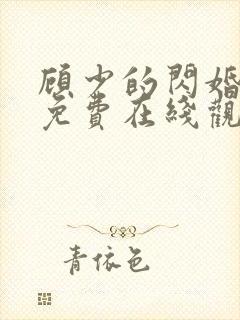 顾少的閃婚
免費在綫觀
青依色